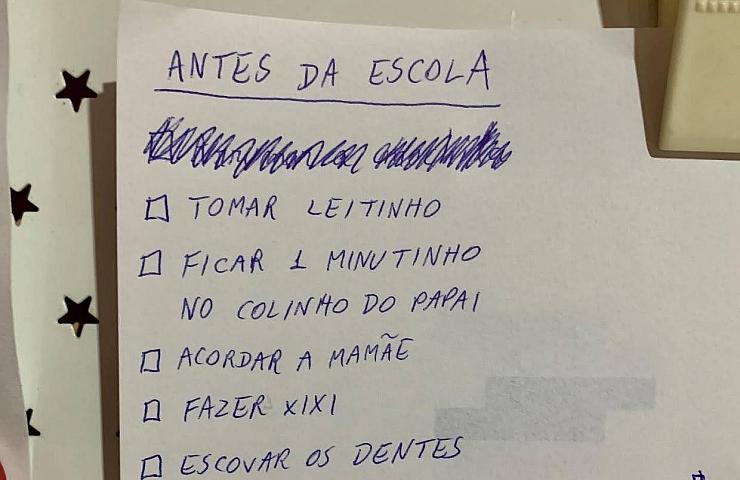 ANTES DA ESCOLA
TOMAR LEITINHO
FICAR 1 MINUTINHO
NO COLINHO DO PAPAI
ACORDAR A MAMÃE
FAZER XIXI
ESCOVAR OS DENTES